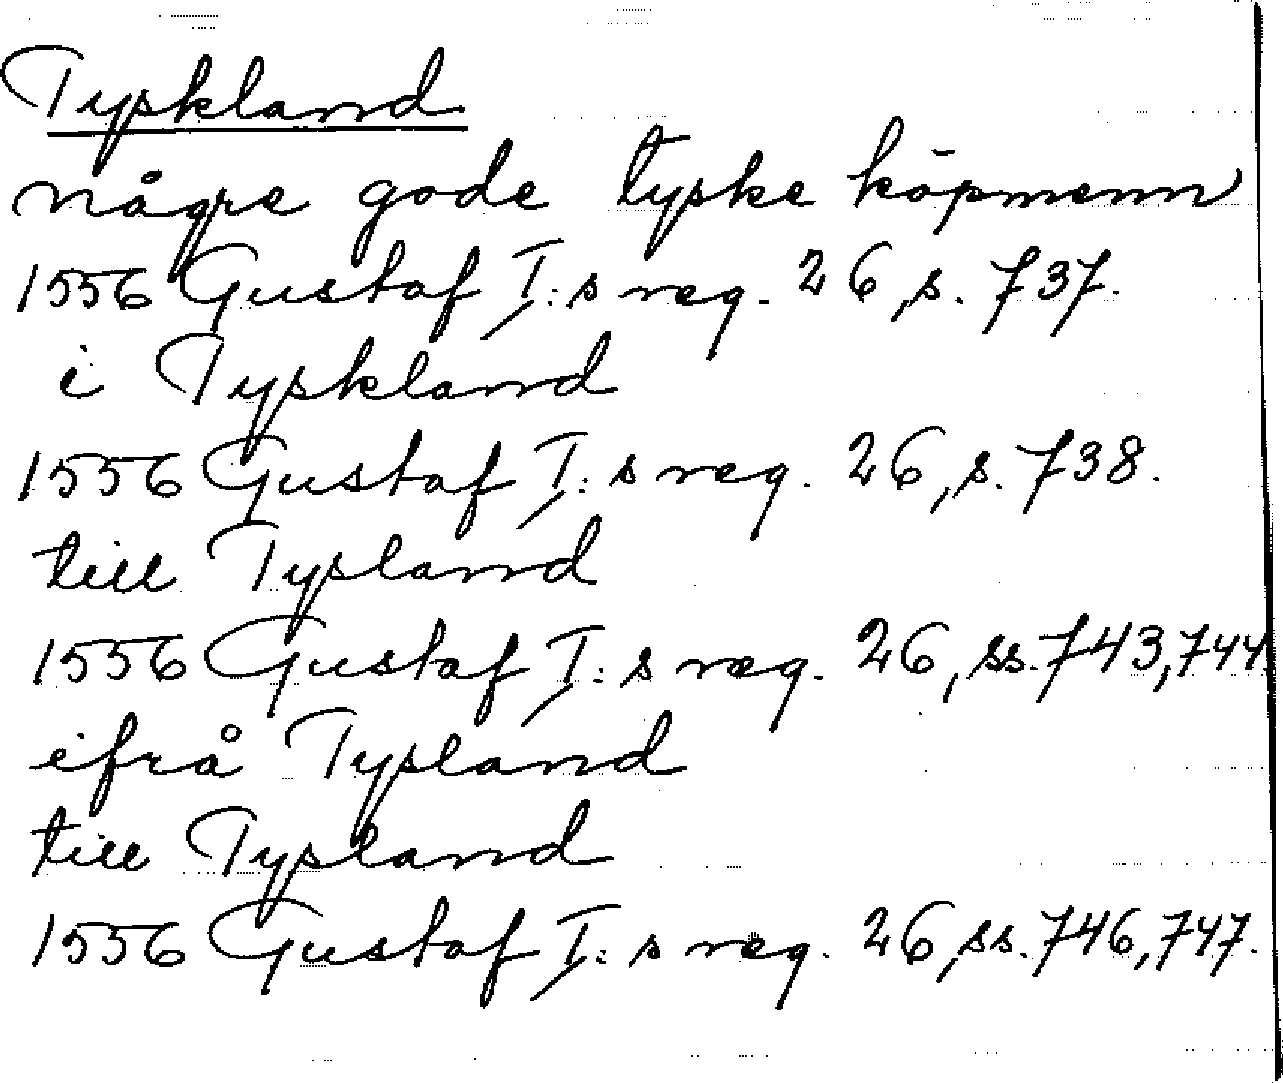 Tyskland
någre gode tyske köpmenn
1556 Gustaf I:s reg. 26, s. 737.
i Tyskland
1556 Gustaf I:s reg. 26, s. 738.
till Tysland
1556 Gustaf I:s reg. 26, ss. 743, 744
ifrå Tysland
till Tysland
1556 Gustaf I:s reg. 26, ss. 746, 747.